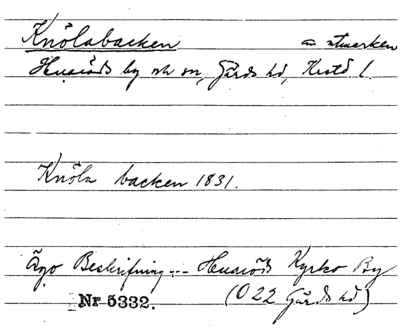 Knölabacken utmarken
Huaröds by och sn, Gärds hd, Krstd l.
Knöla backen 1831.
Ägo Beskrifning --- Huaröds Kyrko By
Nr 5332. (O 22 Gärds hd)